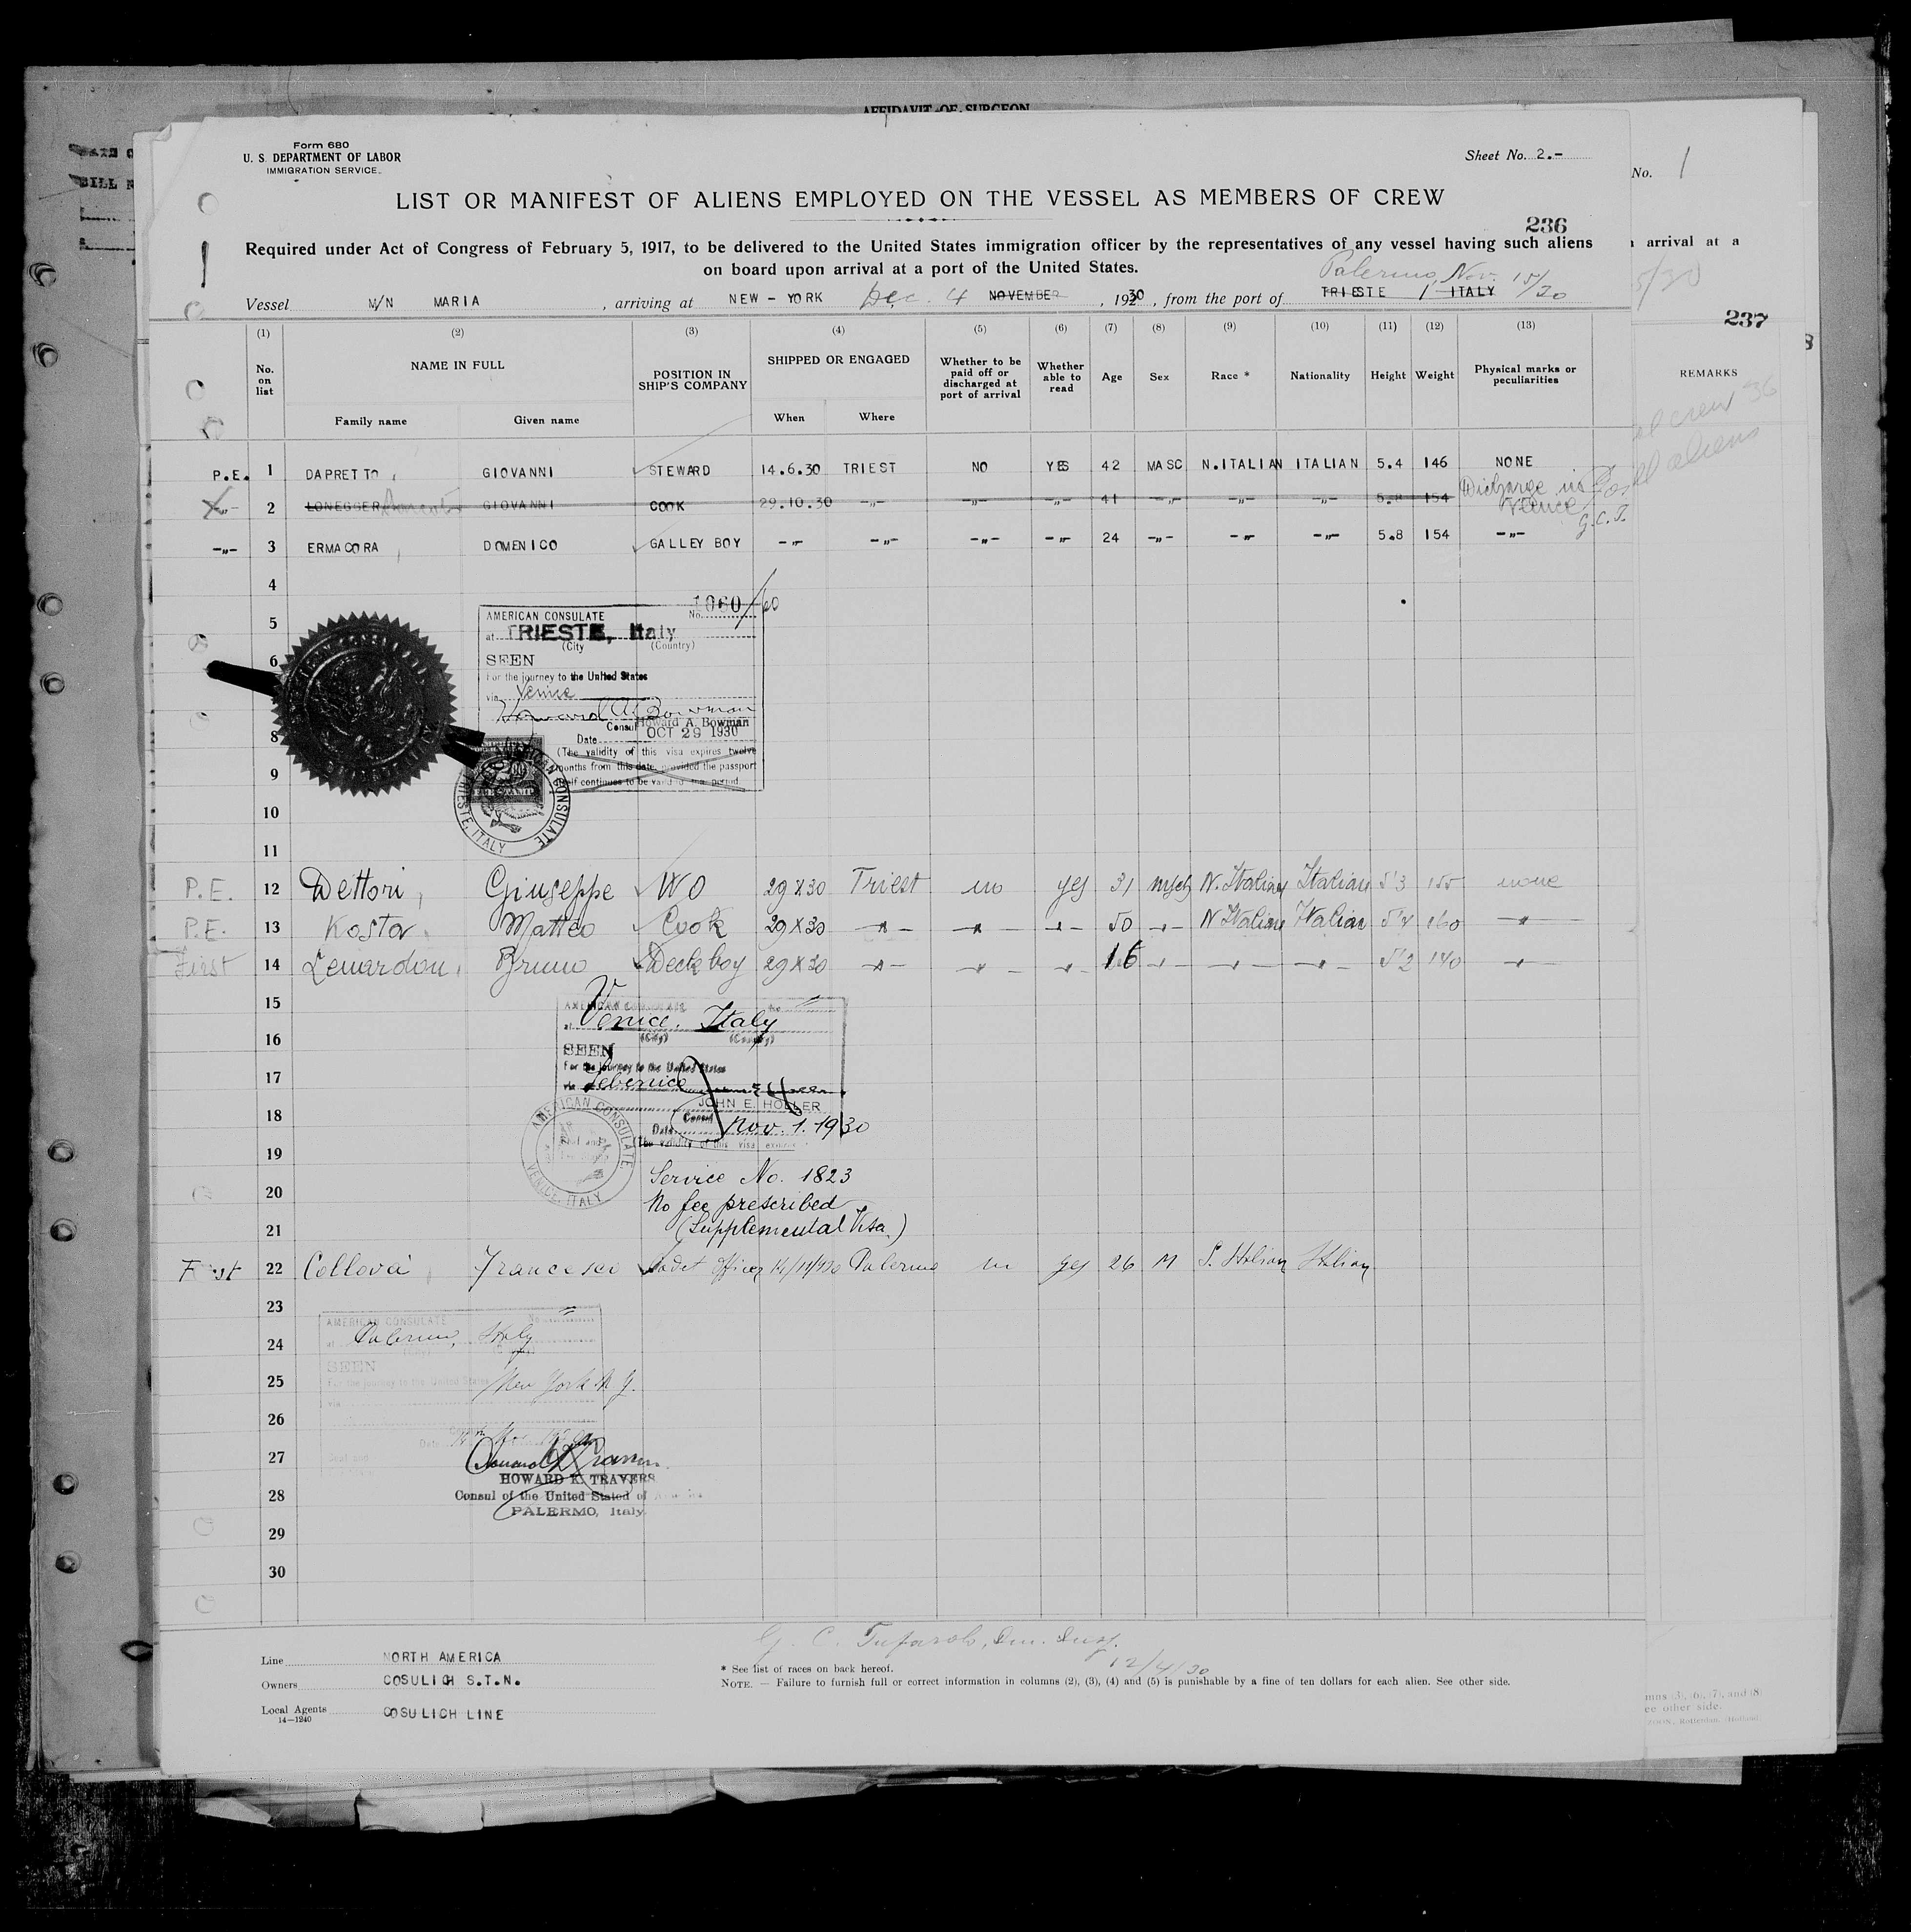 AFFIDAVIT OF SURGEON
Form 680
U. S. DEPARTMENT OF LABOR
IMMIGRATION SERVICE.
Sheet No. 2.-
No. 1
LIST OR MANIFEST OF ALIENS EMPLOYED ON THE VESSEL AS MEMBERS OF CREW
236
Required under Act of Congress of February 5, 1917, to be delivered to the United States immigration officer by the representatives of any vessel having such aliens
on board upon arrival at a port of the United States.
arrival at a
Palermo, Nov. 15/30
Vessel M/N MARIA, arriving at NEW - YORK Dec. 4 NOVEMBER, 1930, from the port of TRIESTE / ITALY
237
(1) (2) (3) (4) (5) (6) (7) (8) (9) (10) (11) (12) (13)
No. on list NAME IN FULL Family name Given name POSITION IN SHIP'S COMPANY SHIPPED OR ENGAGED When Where Whether to be paid off or discharged at port of arrival Whether able to read Age Sex Race * Nationality Height Weight Physical marks or peculiarities
REMARKS
crew 36
aliens
P.E. 1 DAPRETTO, GIOVANNI STEWARD 14.6.30 TRIEST NO YES 42 MASC N.ITALIAN ITALIAN 5.4 146 NONE
-"- 2 LONEGGER GIOVANNI COOK 29.10.30 -"- -"- -"- 41 -"- -"- -"- 5.8 154 Discharge in Venice G.C.T.
-"- 3 ERMACORA, DOMENICO GALLEY BOY -"- -"- -"- -"- 24 -"- -"- -"- 5.8 154 -"-
4
5
6
8
9
10
11
1060/60
AMERICAN CONSULATE No.
at TRIESTE, Italy
(City (Country)
SEEN
For the journey to the United States
via Venice
Howard A. Bowman
Consul Howard A. Bowman
Date OCT 29 1930
(The validity of this visa expires twelve
months from this date, provided the passport
self continues to be valid
AMERICAN CONSULATE TRIESTE, ITALY
P.E. 12 Dettori, Giuseppe W O 29 X 30 Triest no yes 31 N. Italian Italian 5'3 155 none
P.E. 13 Kosta, Matteo Cook 29 X 30 -"- -"- -"- 50 -"- N Italian Italian 160 -"-
First 14 Lenardon, Bruno Deck boy 29 X 30 -"- -"- -"- 16 -"- -"- -"- 5'2 140 -"-
15
16
17
18
19
20
21
AMERICAN CONSULATE No.
at Venice, Italy
(City) (Country)
SEEN
For the journey to the United States
via Sebenico
JOHN E. HOLLER
Consul
Date Nov. 1. 1930
(The validity of this visa
AMERICAN CONSULATE VENICE, ITALY
Service No. 1823
No fee prescribed
(Supplemental Visa)
First 22 Collova, Francesco Cadet officer Palermo no yes 26 M S. Italian Italian
23
24
25
26
27
28
29
30
AMERICAN CONSULATE No.
at Palermo, Italy
SEEN
For the journey to the United States
via New York N.Y.
Date
HOWARD K. TRAVERS
Consul of the United Stated of America
PALERMO, Italy.
G. C. Imm. Insp.
12/4/30
Line NORTH AMERICA
Owners COSULICH S.T.N.
Local Agents COSULICH LINE
14—1240
* See list of races on back hereof.
NOTE. — Failure to furnish full or correct information in columns (2), (3), (4) and (5) is punishable by a fine of ten dollars for each alien. See other side.
(3), (6), (7), and (8)
other side.
Rotterdam (Holland)